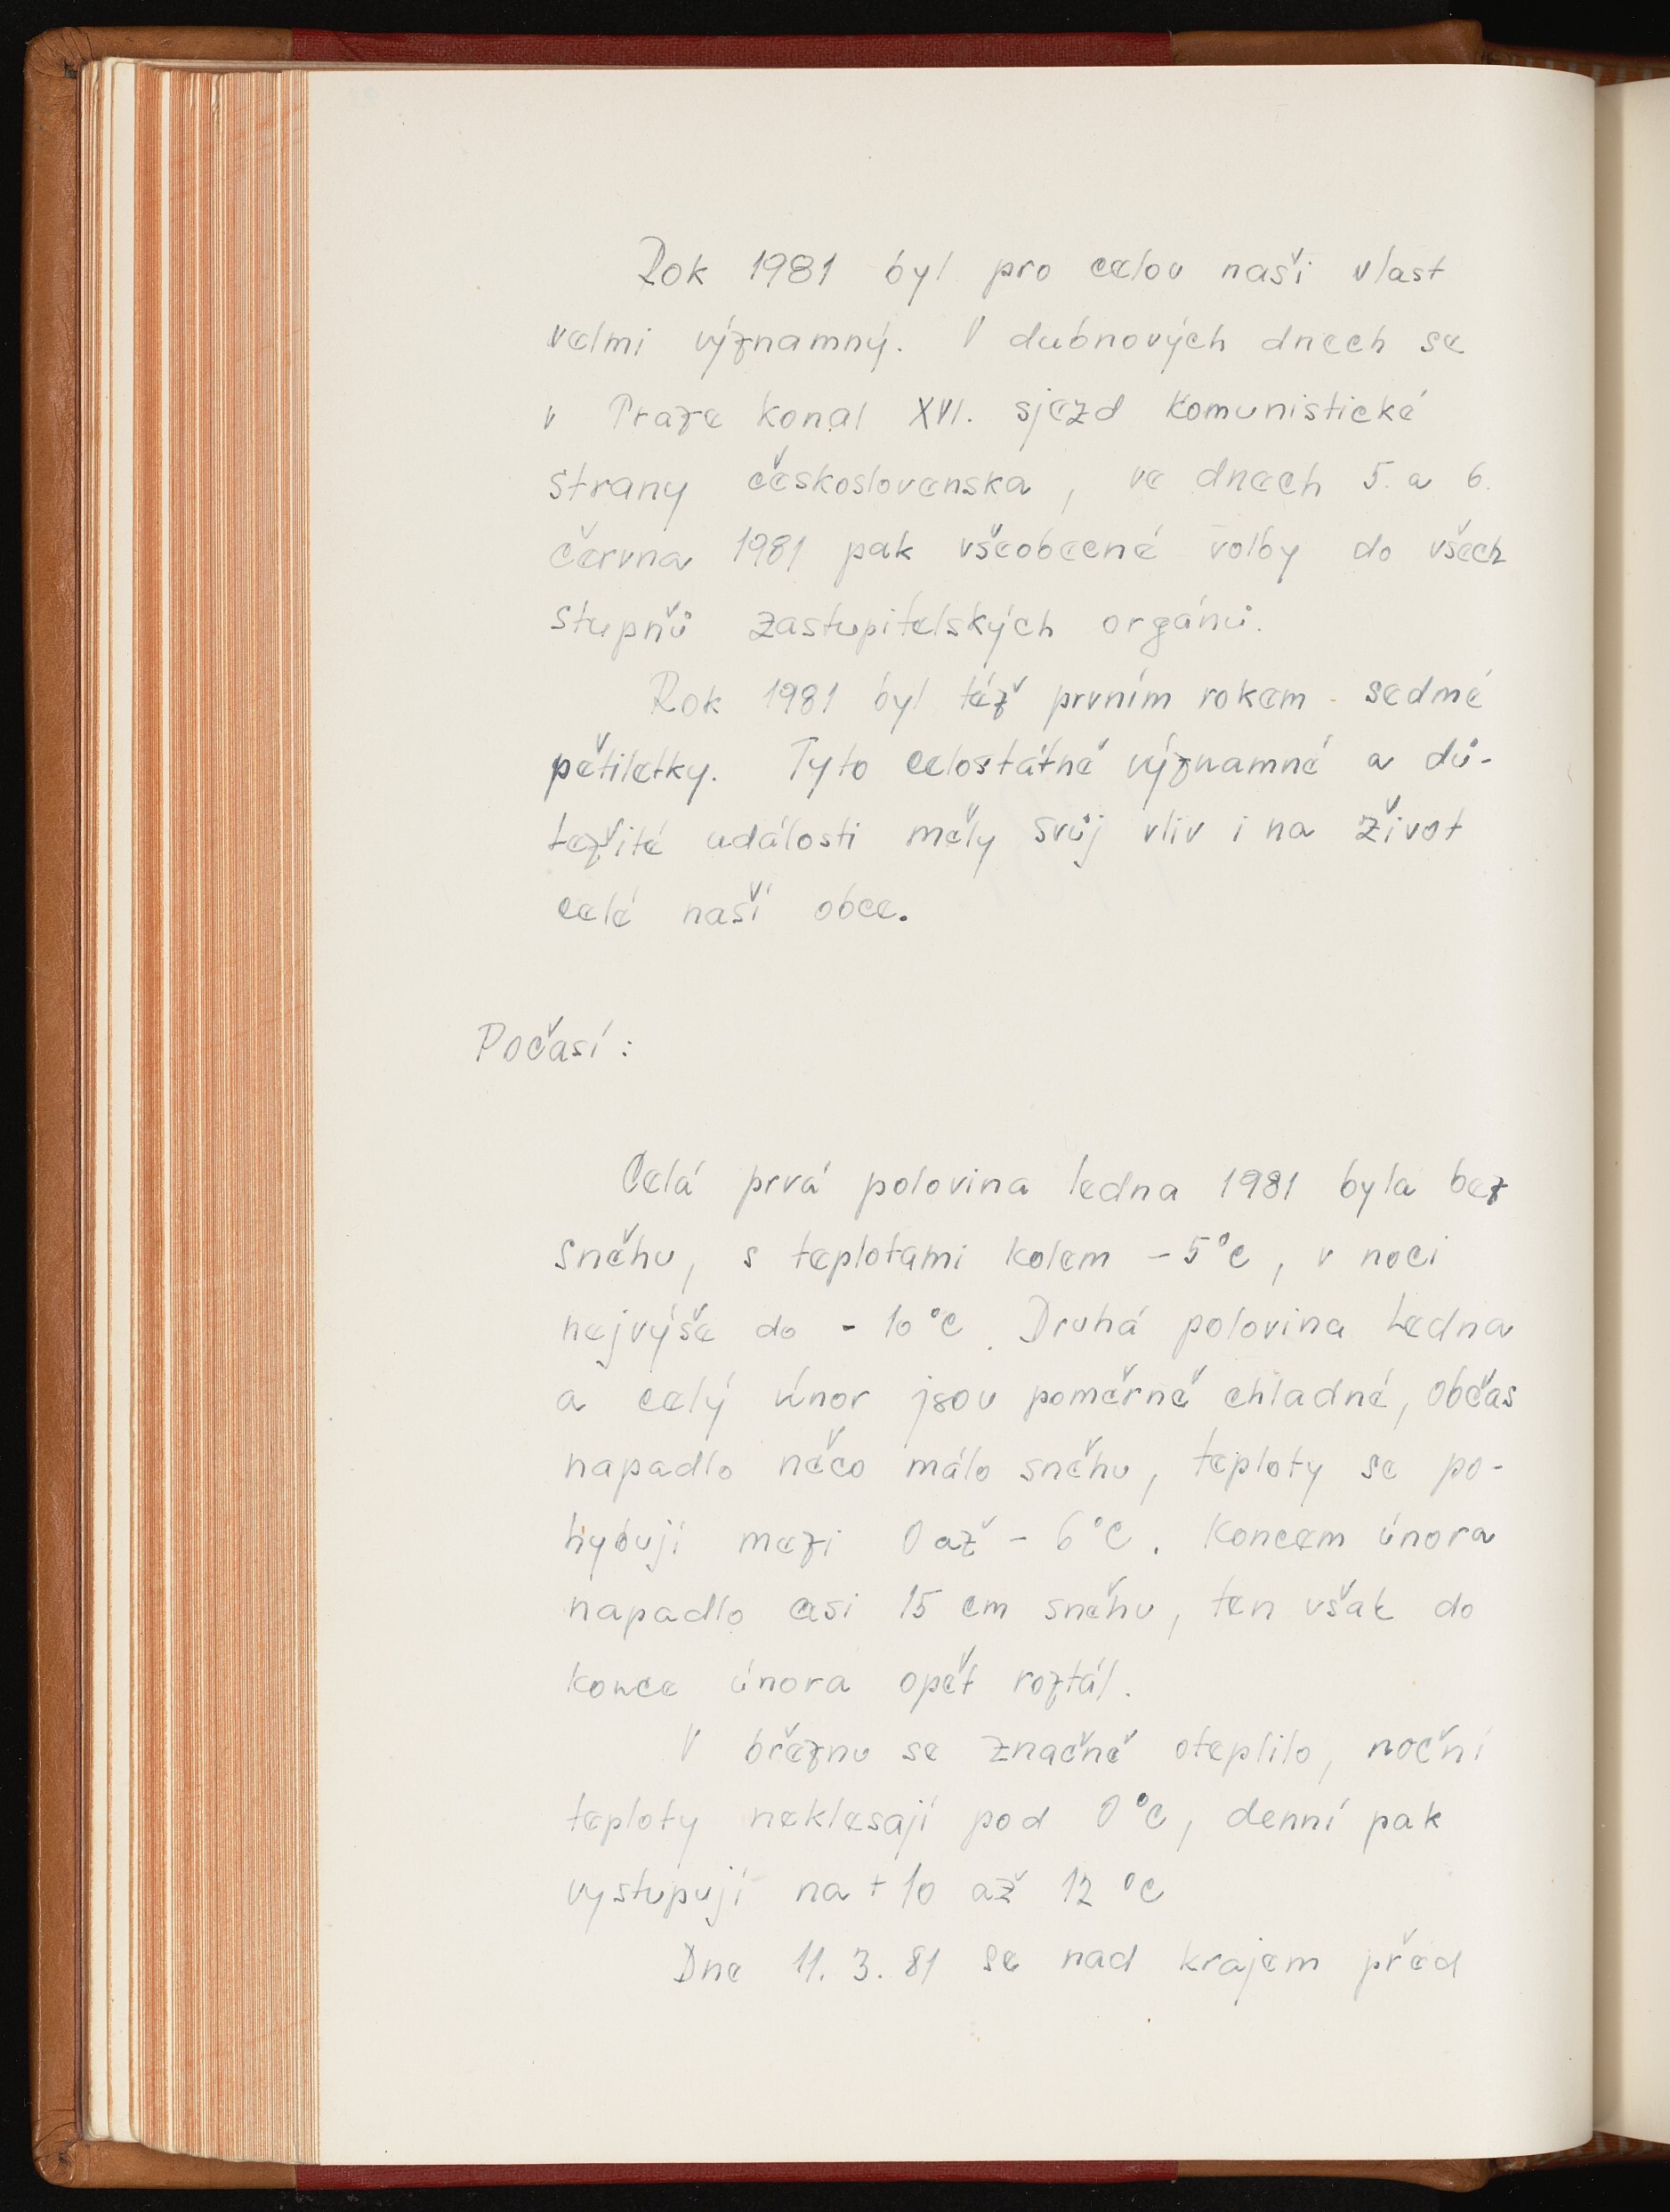 Rok 1981 byl pro celou naši vlast
velmi významný. V dubnových dnech se
v Praze konal XVI. sjezd Komunistické
strany československa, ve dnech 5. a 6.
června 1981 pak všeobecné volby do všech
stupňů zastupitelských orgánů.
Rok 1981 byl též prvním rokem sedmé
pětiletky. Tyto celostátně významné a dů-
ležité události měly svůj vliv i na život
celé naší obce.
Počasí:
Celá prvá polovina ledna 1981 byla bez
sněhu, s teplotami kolem -5°C, v noci
nejvýše do - 10°C. Druhá polovina ledna
a celý únor jsou poměrně chladné, občas
napadlo něco málo sněhu, teploty se po-
hybují mezi 0 až - 6°C. Koncem února
napadlo asi 15 cm sněhu, ten však do
konce února opět roztál.
V březnu se značně oteplilo, noční
teploty neklesají pod 0°C, denní pak
vystupují na + 10 až 12 °C
Dne 11. 3. 81 se nad krajem před